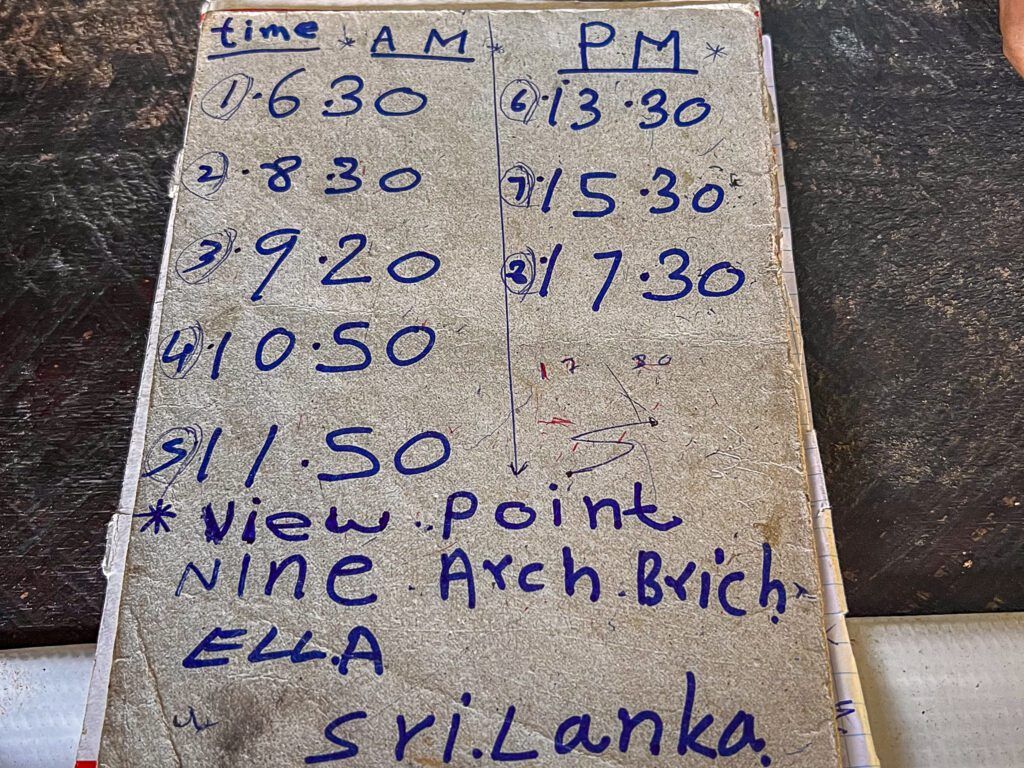 time * AM * PM *
① . 6.30
② . 8.30
③ . 9.20
④ . 10.50
⑤ 11.50
⑥ . 13.30
⑦ . 15.30
⑧ . 17.30
17 30
* View . Point
NINE . Arch . Brich
ELLA
Sri.Lanka.